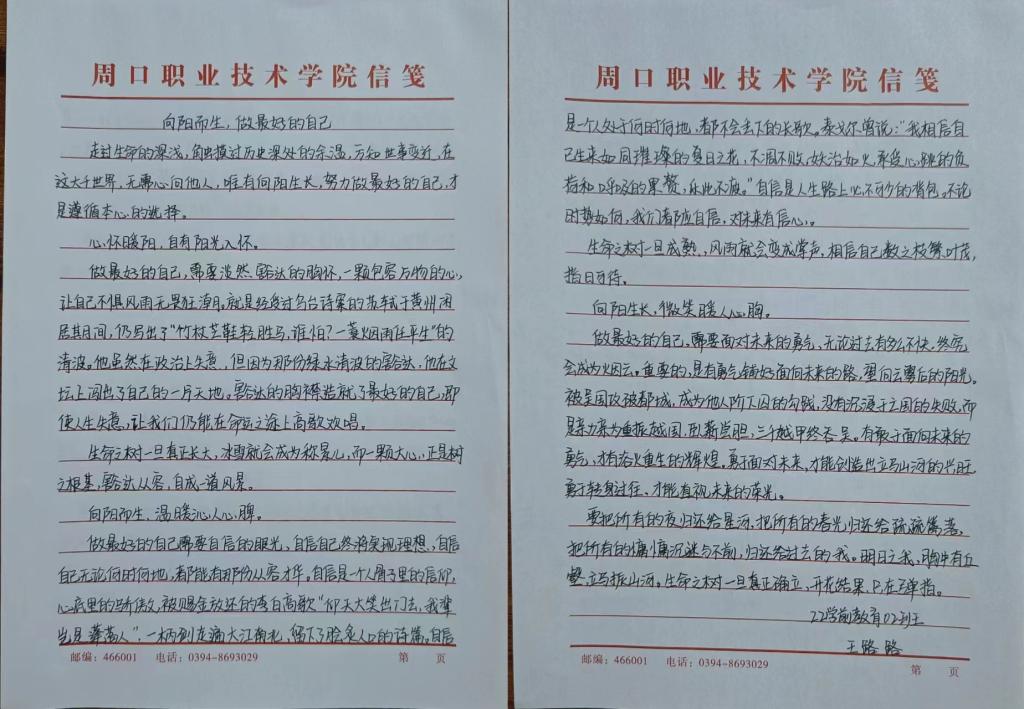 周口职业技术学院信笺
向阳而生，做最好的自己
走过生命的深浅，触摸过历史深处的余温，方知世事变迁，在
这大千世界，无需心向他人，唯有向阳生长，努力做最好的自己，才
是遵循本心的选择。
心怀暖阳，自有阳光入怀。
做最好的自己，需要淡然、豁达的胸怀，一颗包容万物的心，
让自己不惧风雨无畏狂潮。就是经受过乌台诗案的苏轼于黄州闲
居其间，仍写出了“竹杖芒鞋轻胜马，谁怕？一蓑烟雨任平生”的
清波。他虽然在政治上失意，但因为那份绿水清波的豁达，他在文
坛上闯出了自己的一片天地，豁达的胸襟造就了最好的自己，即
使人生失意，让我们仍能在命运之途上高歌欢唱。
生命之树一旦真正长大，冰雪就会成为称景儿，而一颗大心正是树
之根基，豁达从容，自成一道风景。
向阳而生，温暖沁人心脾。
做最好的自己需要自信的眼光，自信自己终将实现理想，自信
自己无论何时何地，都能有那份从容才华，自信是一个人骨子里的信仰，
心底里的骄傲，被赐金放还的李白高歌“仰天大笑出门去，我辈
岂是蓬蒿人”，一柄剑走遍大江南北，留下了脍炙人口的诗篇。自信
邮编：466001 电话：0394-8693029 第 页
周口职业技术学院信笺
是一个人处于何时何地，都不会丢下的长歌。泰戈尔曾说：“我相信自
己生来如同璀璨的夏日之花，不凋不败，妖治如火，承受心跳的负
荷和呼吸的累赘，乐此不疲。”自信是人生路上必不可少的背包。不论
时势如何，我们都应自信，对未来有信心。
生命之树一旦成熟，风雨就会变成掌声，相信自己数之枝繁叶茂，
指日可待。
向阳生长，微笑暖人心胸。
做最好的自己，需要面对未来的勇气，无论过去有多么不快，终究
会成为烟云。重要的，是有勇气铺好面向未来的路，望向云翳后的阳光。
被吴国攻破都城，成为他人阶下囚的勾践，没有沉湎于亡国的失败，而
是亲力亲为重振越国，卧薪尝胆，三千越甲终吞吴。有敢于面向未来的
勇气，才有浴火重生的辉煌。勇于面对未来，才能创造出立马山河的兴旺
勇于转身过往，才能直视未来的荣光。
要把所有的夜归还给星河，把所有的春光归还给疏疏篱落，
把所有的慵慵沉谜与不前，归还给过去的我。明日之我，胸中有丘
壑，立马振山河。生命之树一旦真正确立，开花结果，只在弹指。
22学前教育02班王
王路路
邮编：466001 电话：0394-8693029 第 页